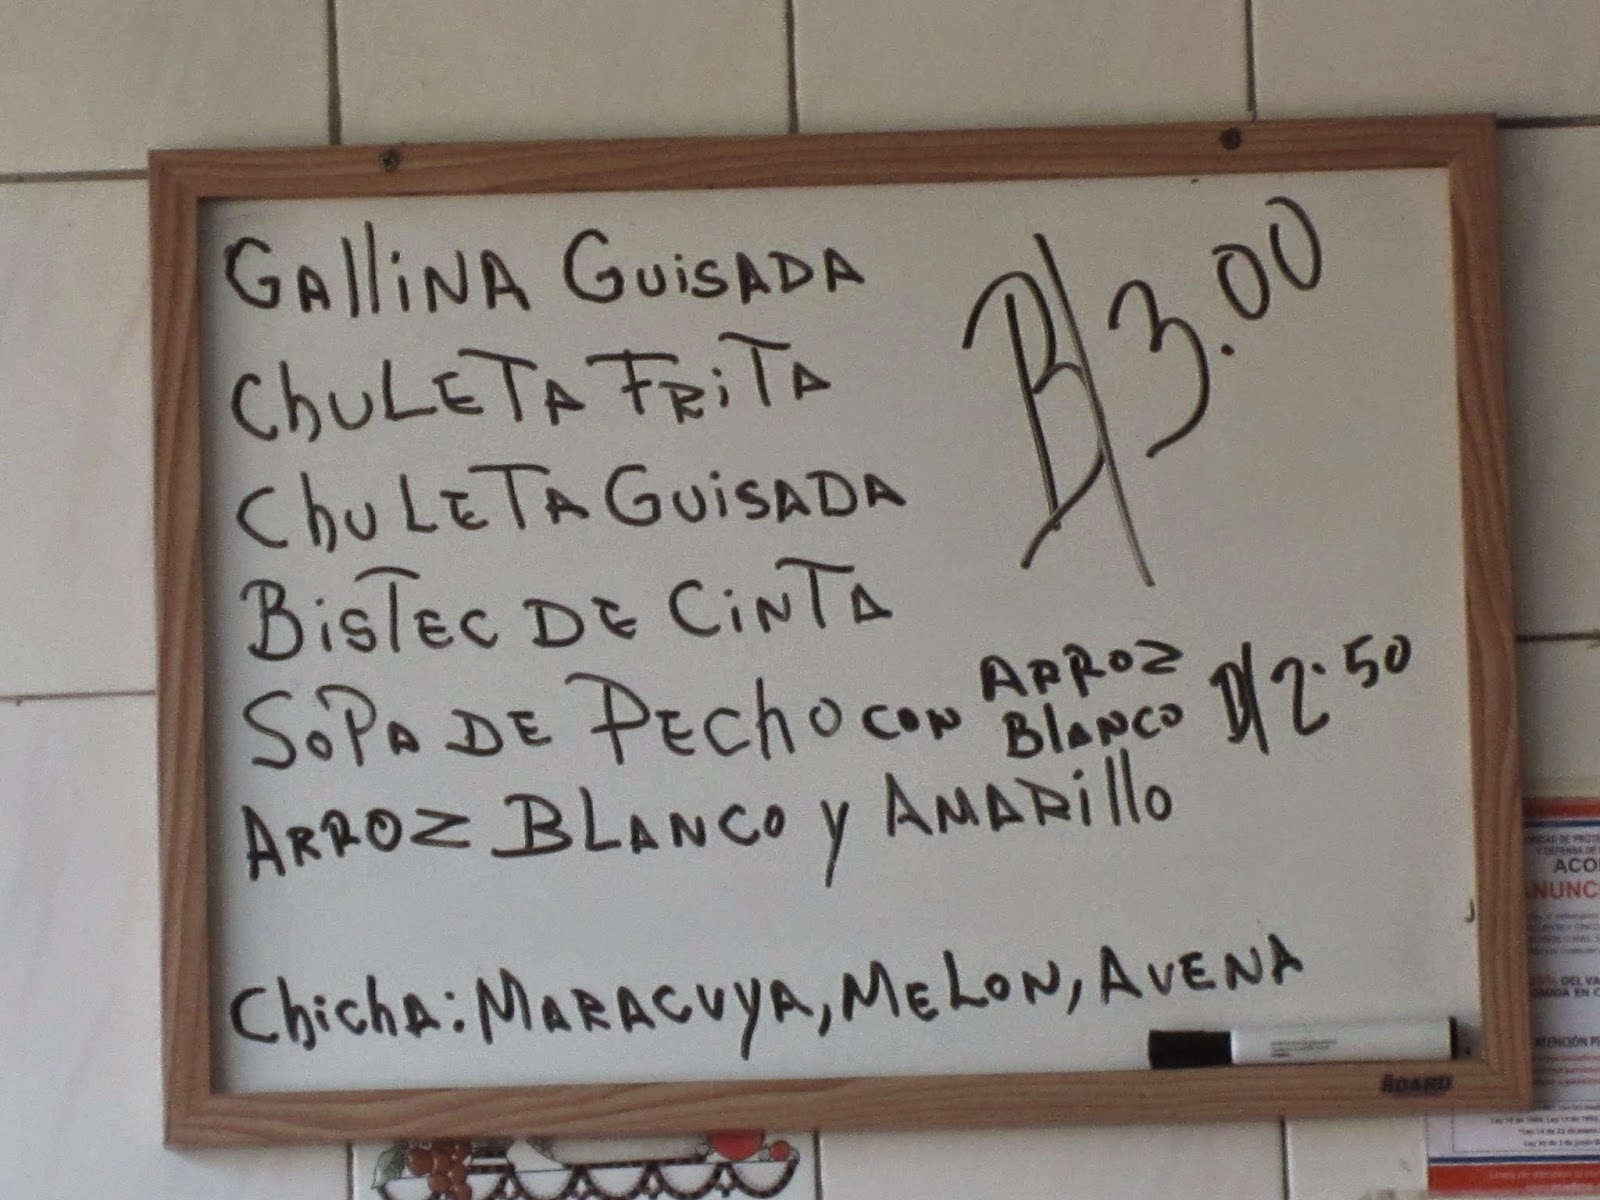 GALLINA GUISADA
B/3.00
ChULETA FRITA
ChULETA GUISADA
BISTEC DE CINTA
SOPA DE PECHO CON ARROZ BLANCO B/2.50
ARROZ BLANCO Y AMARILLO
ChichA: MARACUYA, MELON, AVENA
BOARD
Y DEFENSA DE
ACO
NUNC
DEL VA
ATENCIÓN P